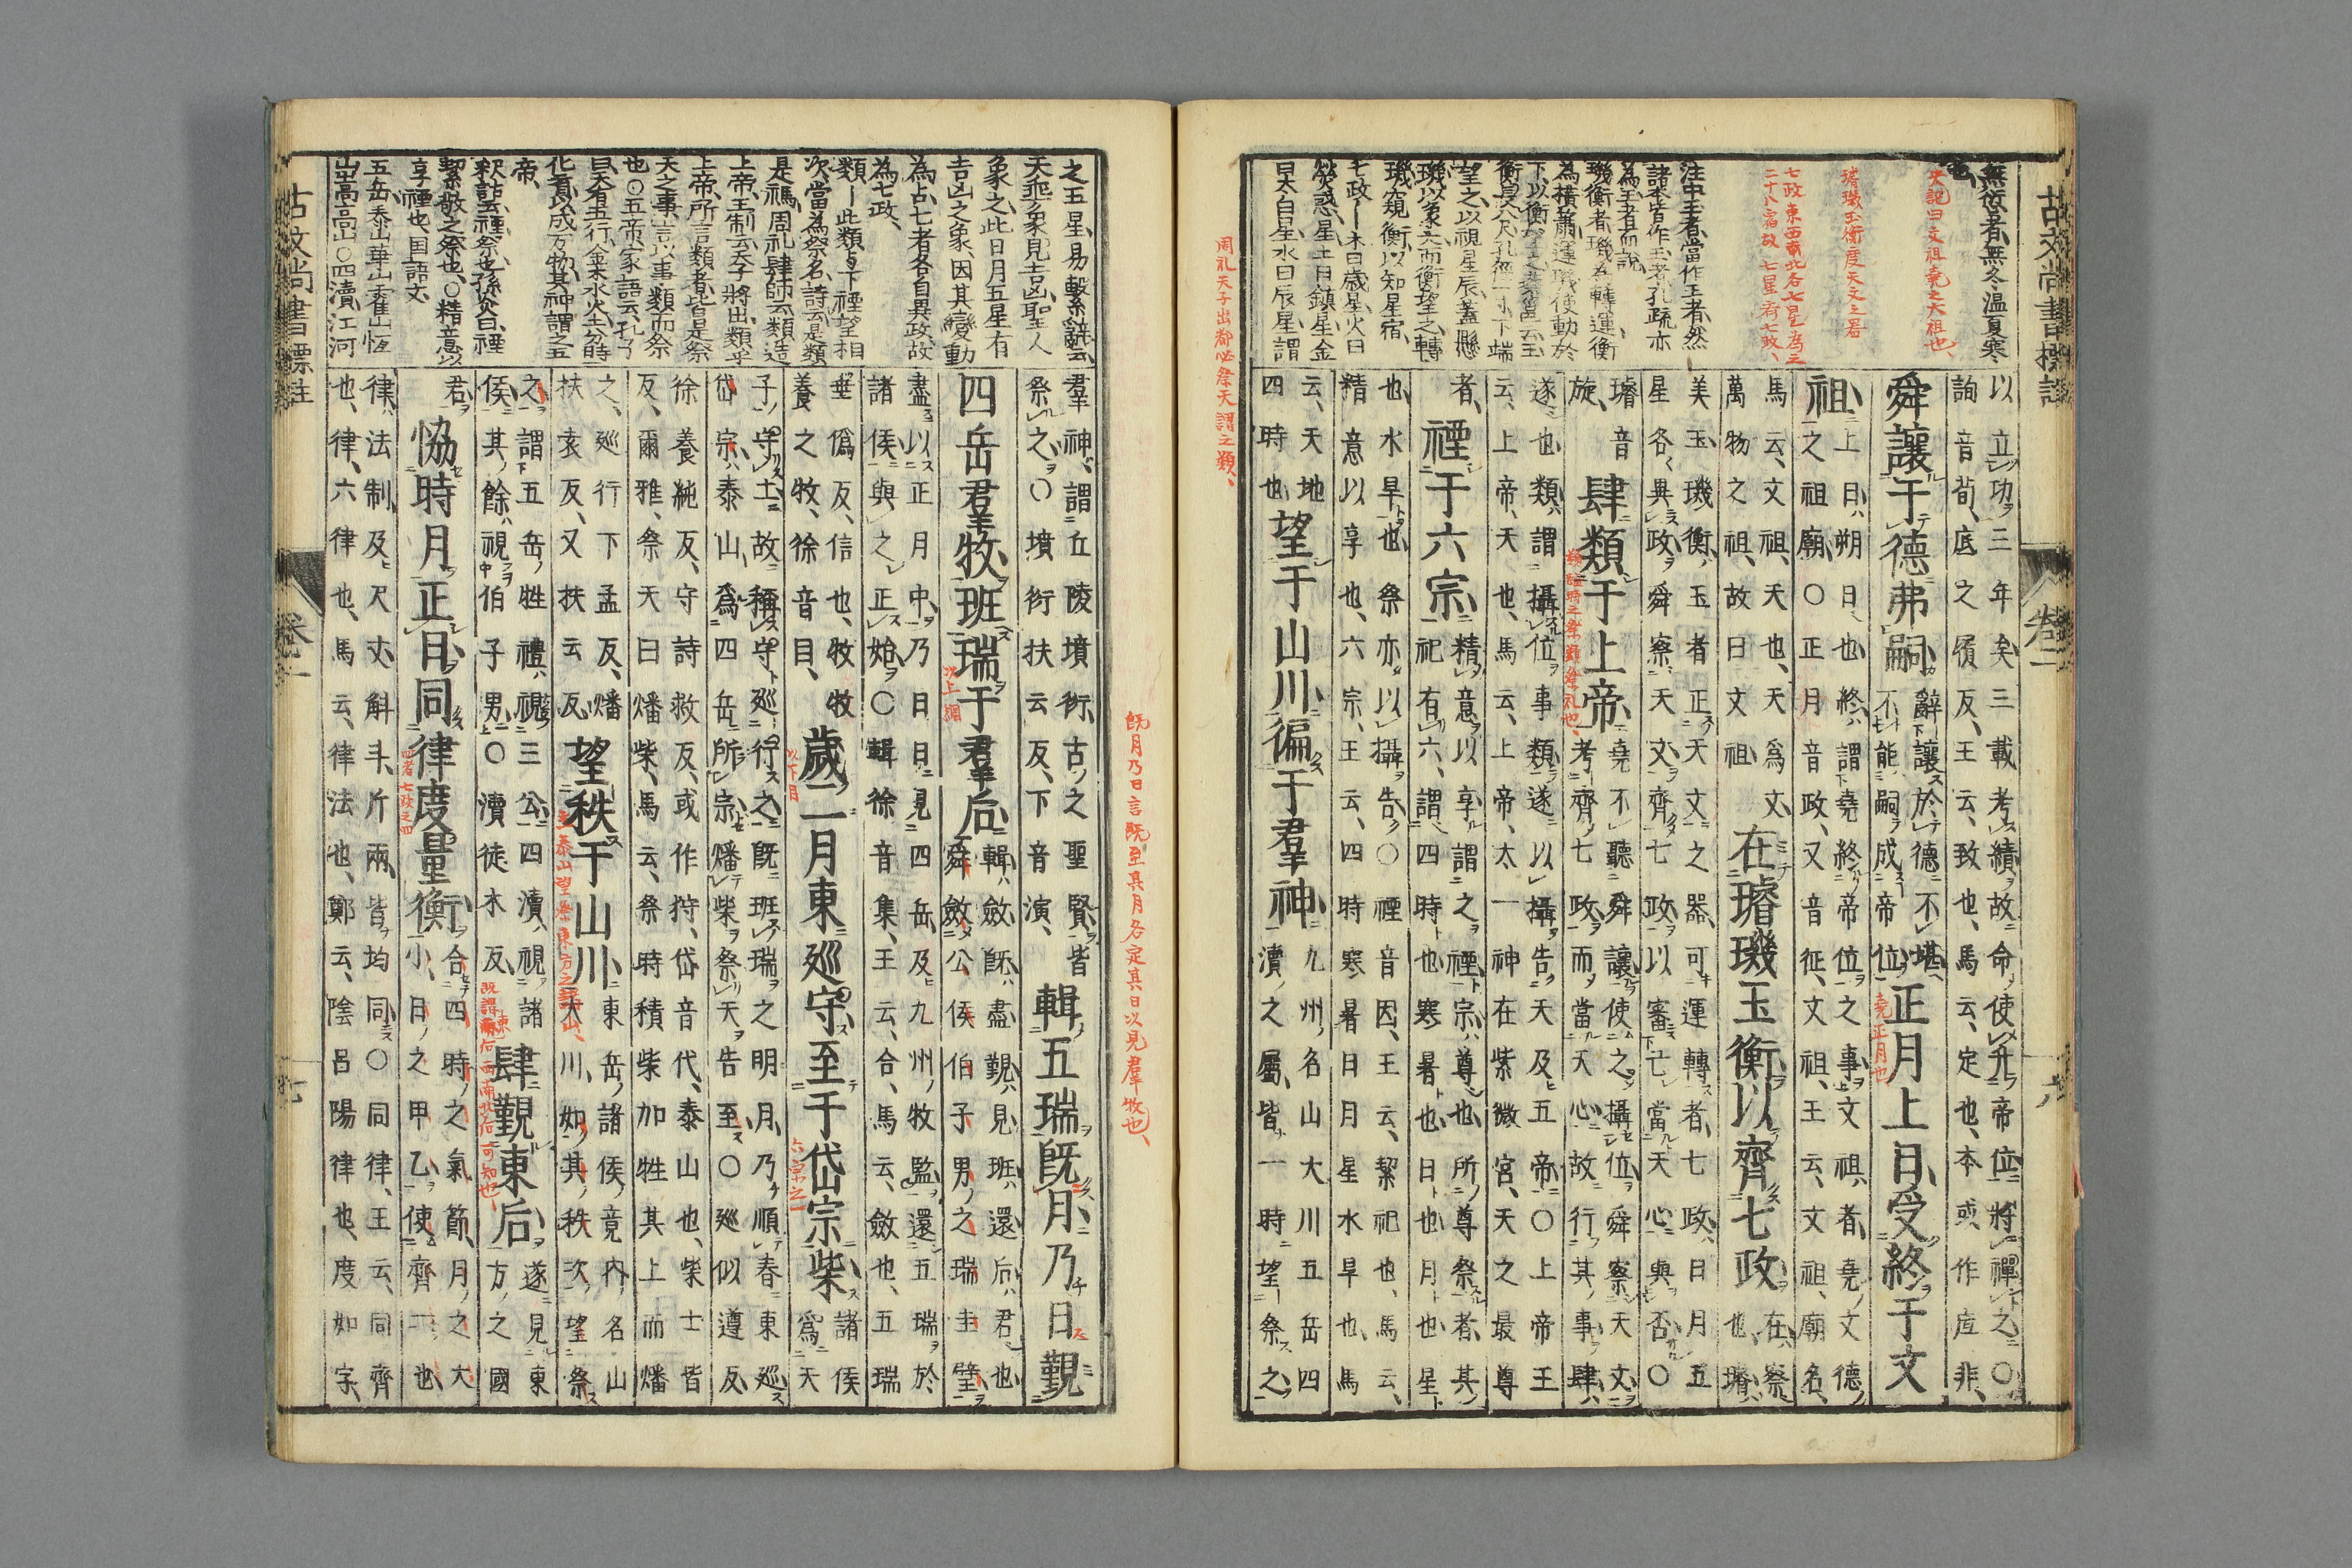 古文尚書標註
卷二
六
無衒者無冬温夏寒
也
史記曰文祖堯之大祖也
璿璣玉衡度天文之器
七政東西南北各七星為三
二十八宿故七星齊七政
注中王者當作玉者然
諸本皆作王者孔疏亦
為王者而說
璣衡者璣為轉運衡
為橫簫運璣使動於
下以衡望之蔡邕云玉
衡長八尺孔徑一寸下端
望之以視星辰蓋懸
璣以象天而衡望之轉
璣窺衡以知星宿
七政―木曰歲星火曰
熒惑星土曰鎮星金
曰太白星水曰辰星謂
以立功三年矣三載考績故命使升帝位將禪之○
詢音荀底之履反王云致也馬云定也本或作庢非
舜讓于德弗嗣
辭讓於德不堪
不能嗣成帝位
正月上日受終于文
堯正月也
祖
上日朔日也終謂堯終帝位之事文祖者堯文德
之祖廟○正月音政又音征文祖王云文祖廟名
馬云文祖天也天爲文
萬物之祖故曰文祖
在璿璣玉衡以齊七政
在察
也璿
美玉璣衡玉者正天文之器可運轉者七政日月五
星各異政舜察天文齊七政以審己當天心與否○
璿音
旋
肆類于上帝
堯不聽舜讓使之攝位舜察天文
考齊七政而當天心故行其事肆
遂也類謂攝位事類遂以攝告天及五帝○上帝王
云上帝天也馬云上帝太一神在紫微宮天之最尊
者
禋于六宗
精意以享謂之禋宗尊也所尊祭者其
祀有六謂四時也寒暑也日也月也星
也水旱也祭亦以攝告○禋音因王云絜祀也馬云
精意以享也六宗王云四時寒暑日月星水旱也馬
云天地
四時也
望于山川徧于羣神
九州名山大川五岳四
瀆之屬皆一時望祭之
周礼天子出都必祭天謂之類
既月乃日言既至其月各定其日以見羣牧也
之五星易繫辭云
天垂象見吉凶聖人
象之此日月五星有
吉凶之象因其變動
為占七者各自異政故
為七政
類―此類与下禋望相
次當為祭名詩云是類
是禡周礼肆師云類造
上帝王制云天子將出類乎
上帝所言類者皆是祭
天之事言以事類而祭
也○五帝家語云孔子
曰天有五行金木水火土分時
化育以成万物其神謂之五
帝
釈詁云禋祭也孫炎曰禋
絜敬之祭也○精意以
享禋也国語文
五岳泰山華山霍山恆
山嵩高山○四瀆江河
羣神謂丘陵墳衍古之聖賢皆
祭之○墳衍扶云反下音演
輯五瑞既月乃日覲
四岳羣牧班瑞于羣后
輯斂既盡覲見班還后君也
舜斂公侯伯子男之瑞圭璧
盡以正月中乃日日見四岳及九州牧監還五瑞於
諸侯與之正始○輯徐音集王云合馬云斂也五瑞
垂僞反信也牧牧
養之牧徐音目
歲二月東巡守至于岱宗柴
諸侯
爲天
子守土故稱守巡行之既班瑞之明月乃順春東巡
岱宗泰山爲四岳所宗燔柴祭天告至○巡似遵反
徐養純反守詩救反或作狩岱音代泰山也柴士皆
反爾雅祭天曰燔柴馬云祭時積柴加牲其上而燔
之巡行下孟反燔
扶袁反又扶云反
望秩于山川
東岳諸侯竟內名山
大川如其秩次望祭
之謂五岳牲禮視三公四瀆視諸
侯其餘視伯子男○瀆徒木反
肆覲東后
遂見東
方之國
君
恊時月正日同律度量衡
合四時之氣節月之大
小日之甲乙使齊一也
律法制及尺丈斛斗斤兩皆均同○同律王云同齊
也律六律也馬云律法也鄭云陰呂陽律也度如字
古文尚書標註
卷二
七